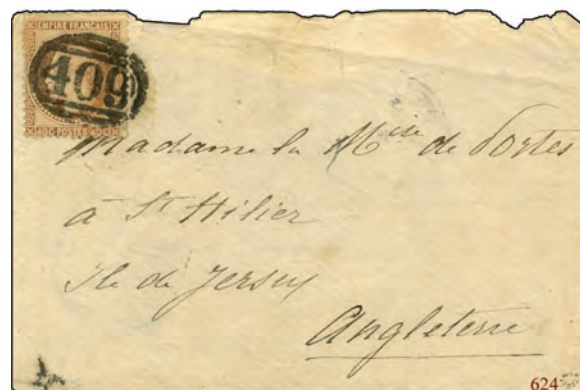 EMPIRE FRANÇAIS
409
40c POSTES 40c
Madame la Mise de Portes
à St Hilier
Ile de Jersey
Angleterre
624